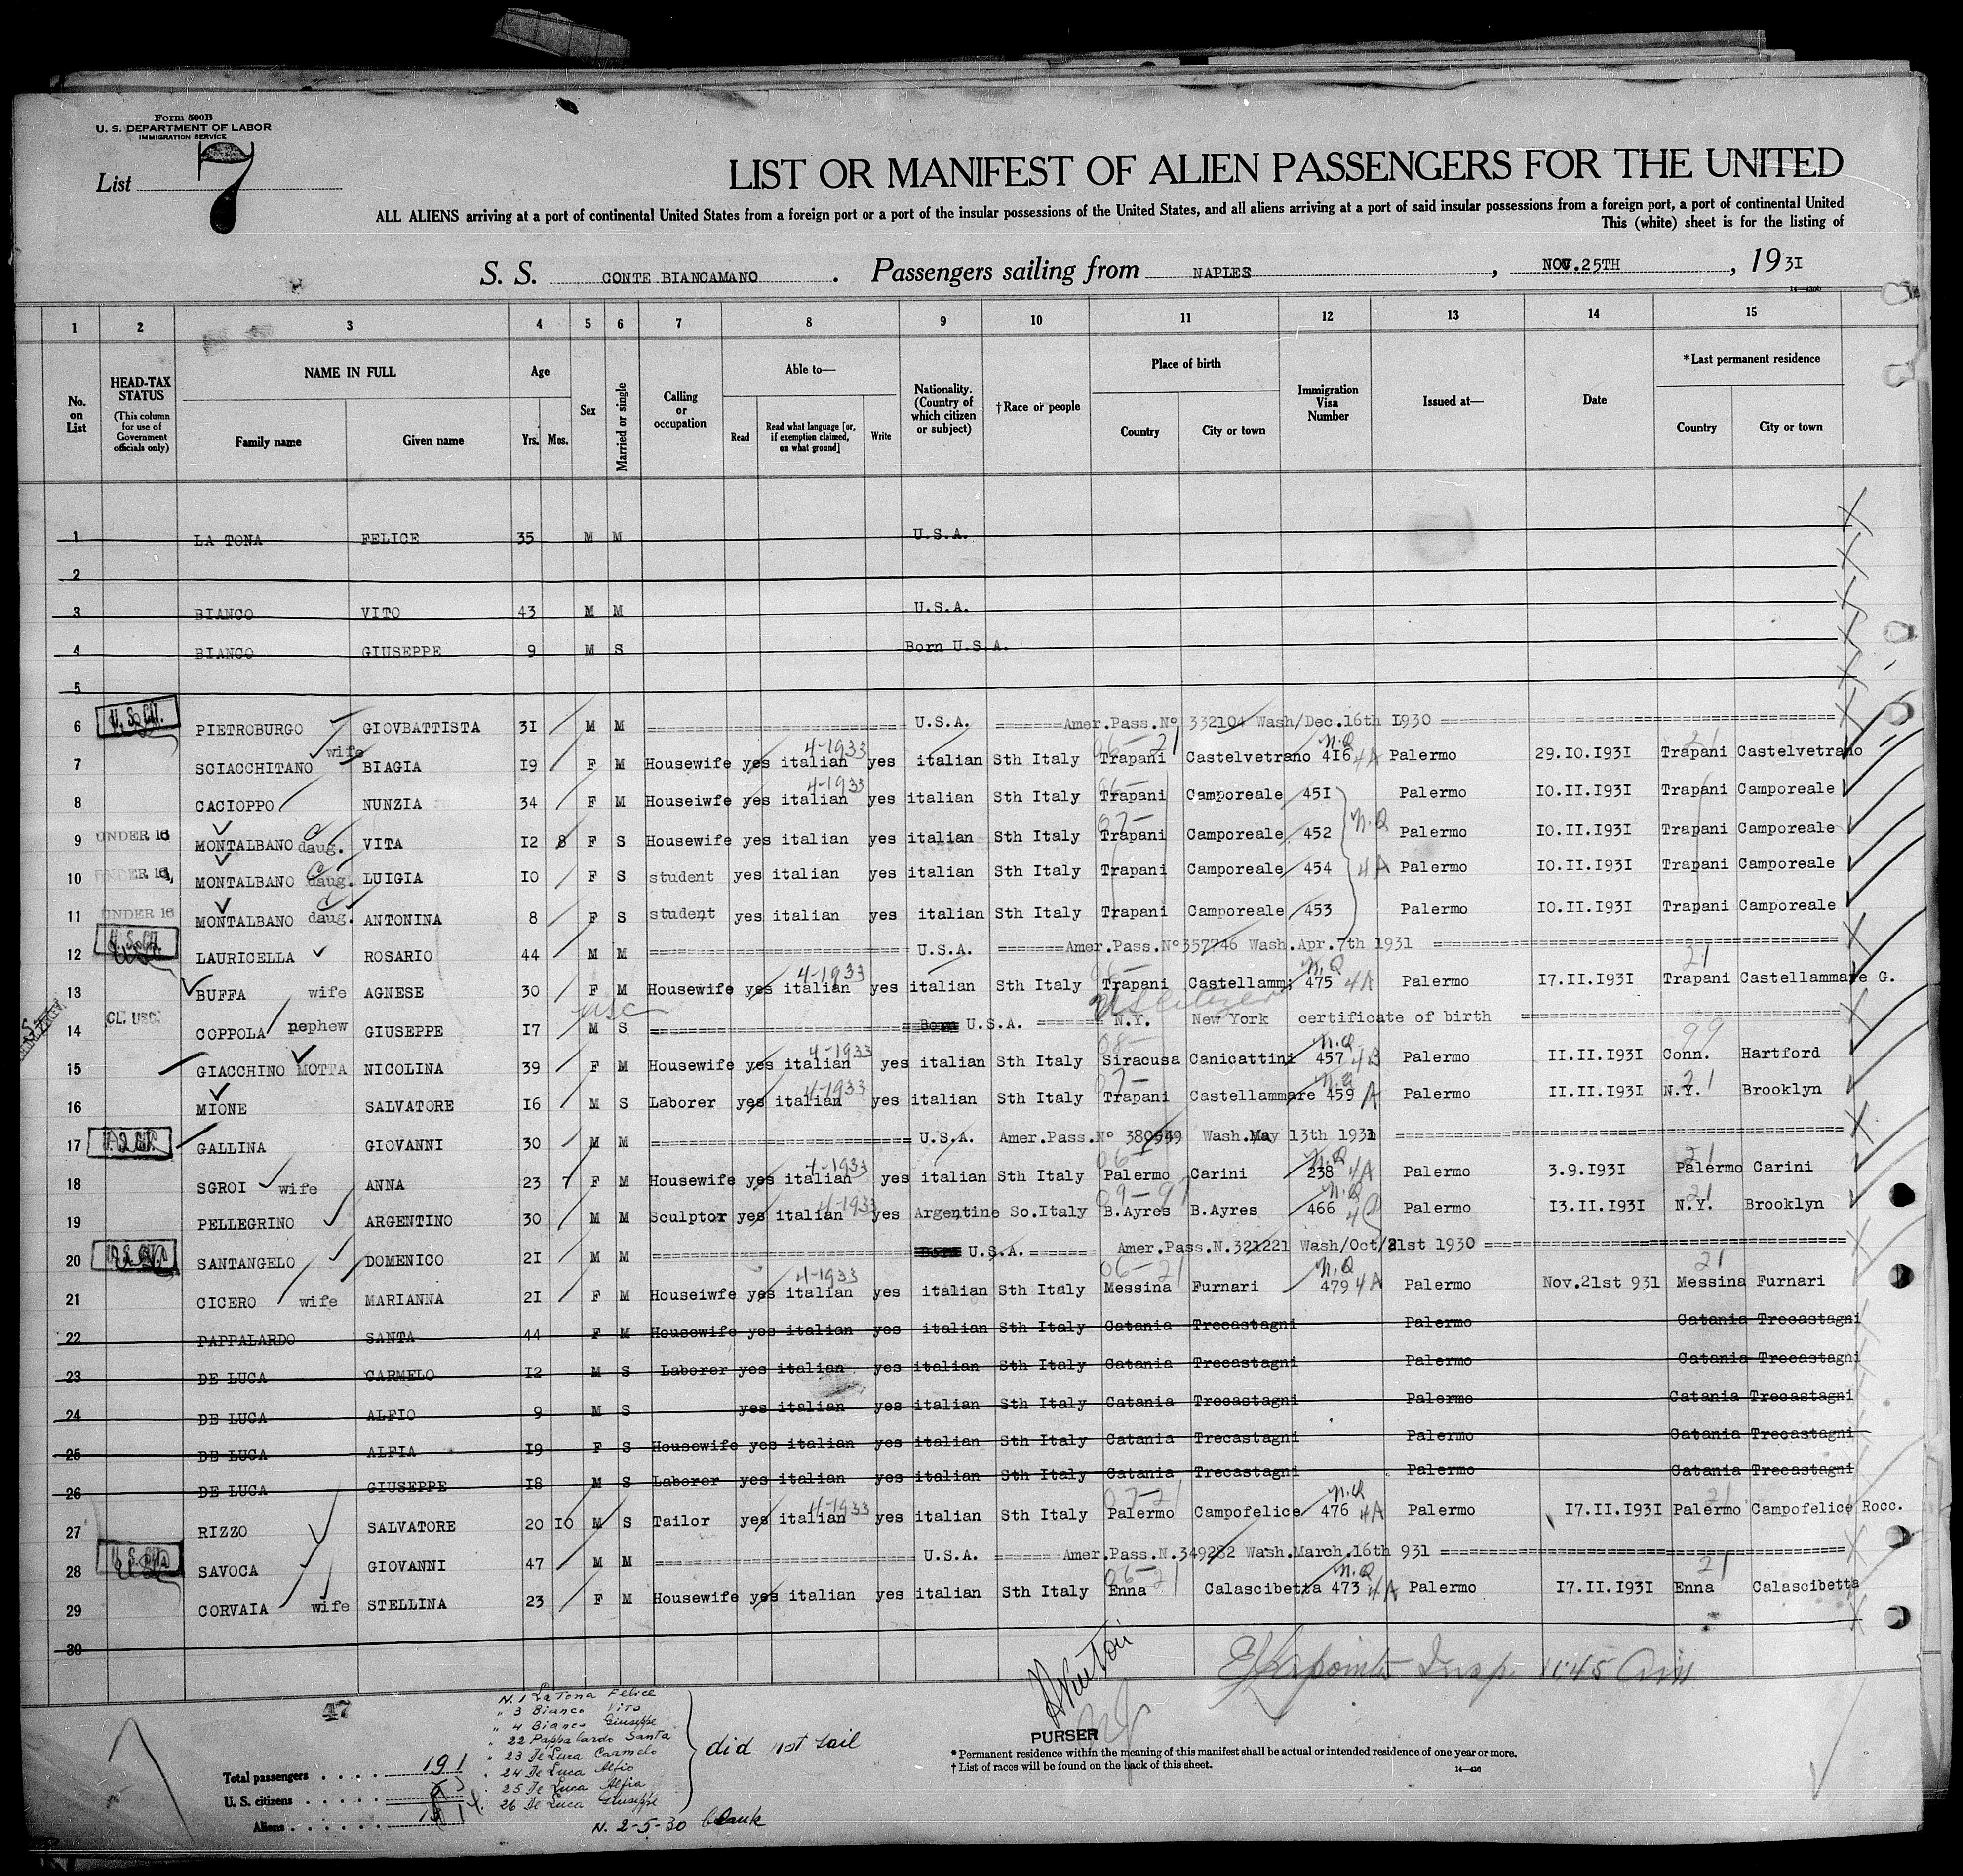 Form 500B
U. S. DEPARTMENT OF LABOR
IMMIGRATION SERVICE
List 7
LIST OR MANIFEST OF ALIEN PASSENGERS FOR THE UNITED
ALL ALIENS arriving at a port of continental United States from a foreign port or a port of the insular possessions of the United States, and all aliens arriving at a port of said insular possessions from a foreign port, a port of continental United
This (white) sheet is for the listing of
S. S. CONTE BIANCAMANO. Passengers sailing from NAPLES, NOV.25TH, 1931
1 2 3 4 5 6 7 8 9 10 11 12 13 14 15
No. on List
HEAD-TAX STATUS
(This column for use of Government officials only)
NAME IN FULL
Family name Given name
Age
Yrs. Mos.
Sex
Married or single
Calling or occupation
Able to—
Read
Read what language [or, if exemption claimed, on what ground]
Write
Nationality. (Country of which citizen or subject)
†Race or people
Place of birth
Country City or town
Immigration Visa Number
Issued at—
Date
*Last permanent residence
Country City or town
1 LA TONA FELICE 35 M M U.S.A.
2
3 BIANCO VITO 43 M M U.S.A.
4 BIANCO GIUSEPPE 9 M S Born U.S.A.
5
6 PIETROBURGO GIOVBATTISTA 3I M M U.S.A. Amer.Pass.Nº 332104 Wash/Dec.16th I930
7 SCIACCHITANO wife BIAGIA I9 F M Housewife yes italian 4-1933 yes italian Sth Italy Trapani Castelvetrano 4I6 N.Q 4A Palermo 29.I0.I93I Trapani Castelvetrano
8 CACIOPPO NUNZIA 34 F M Houseiwfe yes italian 4-1933 yes italian Sth Italy Trapani Camporeale 45I Palermo I0.II.I93I Trapani Camporeale
9 UNDER 16 MONTALBANO daug. VITA I2 8 F S Housewife yes italian yes italian Sth Italy Trapani Camporeale 452 N.Q Palermo I0.II.I93I Trapani Camporeale
10 UNDER 16 MONTALBANO daug. LUIGIA I0 F S student yes italian yes italian Sth Italy Trapani Camporeale 454 4A Palermo I0.II.I93I Trapani Camporeale
11 UNDER 16 MONTALBANO daug. ANTONINA 8 F S student yes italian yes italian Sth Italy Trapani Camporeale 453 Palermo I0.II.I93I Trapani Camporeale
12 LAURICELLA ROSARIO 44 M M U.S.A. Amer.Pass.Nº357746 Wash.Apr.7th 1931
13 BUFFA wife AGNESE 30 F M Housewife yes italian 4-1933 yes italian Sth Italy Trapani Castellamm; 475 N.Q 4A Palermo I7.II.I93I Trapani Castellammare G.
14 CL. USC. COPPOLA nephew GIUSEPPE I7 usc M S Born U.S.A. US Citizen N.Y. New York certificate of birth
15 GIACCHINO MOTTA NICOLINA 39 F M Housewife yes italian 4-1933 yes italian Sth Italy Siracusa Canicattini 457 N.Q. 4B Palermo II.II.I93I Conn. Hartford
16 MIONE SALVATORE I6 M S Laborer yes italian 4-1933 yes italian Sth Italy Trapani Castellammare 459 N.Q A Palermo II.II.I93I N.Y. Brooklyn
17 GALLINA GIOVANNI 30 M M U.S.A. Amer.Pass.Nº Wash.May 13th 193
18 SGROI wife ANNA 23 7 F M Housewife yes italian 4-1933 yes italian Sth Italy Palermo Carini 238 N.Q 4A Palermo 3.9.I93I Palermo Carini
19 PELLEGRINO ARGENTINO 30 M M Sculptor yes italian 4-1933 yes Argentine So.Italy B.Ayres B.Ayres 466 N.Q Palermo I3.II.I93I N.Y. Brooklyn
20 SANTANGELO DOMENICO 2I M M Born U.S.A. Amer.Pass.N.321221 Wash/Oct/21st 1930
21 CICERO wife MARIANNA 2I F M Houseiwfe yes italian 4-1933 yes italian Sth Italy Messina Furnari 479 N.Q 4A Palermo Nov.21st 931 Messina Furnari
22 PAPPALARDO SANTA 44 F M Housewife yes italian yes italian Sth Italy Catania Trecastagni Palermo Catania Trecastagni
23 DE LUCA CARMELO I2 M S Laborer yes italian yes italian Sth Italy Catania Trecastagni Palermo Catania Trecastagni
24 DE LUCA ALFIO 9 M S yes italian yes italian Sth Italy Catania Trecastagni Palermo Catania Trecastagni
25 DE LUCA ALFIA I9 F S Housewife yes italian yes italian Sth Italy Catania Trecastagni Palermo Catania Trecastagni
26 DE LUCA GIUSEPPE I8 M S Laborer yes italian yes italian Sth Italy Catania Trecastagni Palermo Catania Trecastagni
27 RIZZO SALVATORE 20 I0 M S Tailor yes italian 4-1933 yes italian Sth Italy Palermo Campofelice 476 N.Q 4A Palermo I7.II.I93I Palermo Campofelice Rocc.
28 SAVOCA GIOVANNI 47 M M U.S.A. Amer.Pass.N.349282 Wash.March.16th 931
29 CORVAIA wife STELLINA 23 F M Housewife yes italian yes italian Sth Italy Enna Calascibetta 473 N.Q 4A Palermo I7.II.I93I Enna Calascibetta
30
Insp. 11:45 Am
47
N. 1 La Tona Felice
" 3 Bianco Vito
" 4 Bianco Giuseppe
" 22 Pappalardo Santa
" 23 De Luca Carmelo
" 24 De Luca Alfio
" 25 De Luca Alfia
" 26 De Luca Giuseppe
did not sail
N. 2-5-30 blank
Total passengers . . . . 191
U. S. citizens . . . . .
Aliens . . . . . .
PURSER
* Permanent residence within the meaning of this manifest shall be actual or intended residence of one year or more.
† List of races will be found on the back of this sheet.
14—430